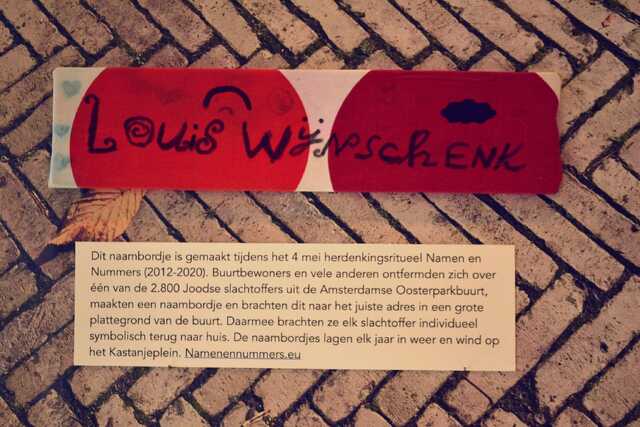 Louis WijNSCHENK
Dit naambordje is gemaakt tijdens het 4 mei herdenkingsritueel Namen en
Nummers (2012-2020). Buurtbewoners en vele anderen ontfermden zich over
één van de 2.800 Joodse slachtoffers uit de Amsterdamse Oosterparkbuurt,
maakten een naambordje en brachten dit naar het juiste adres in een grote
plattegrond van de buurt. Daarmee brachten ze elk slachtoffer individueel
symbolisch terug naar huis. De naambordjes lagen elk jaar in weer en wind op
het Kastanjeplein. Namenennummers.eu